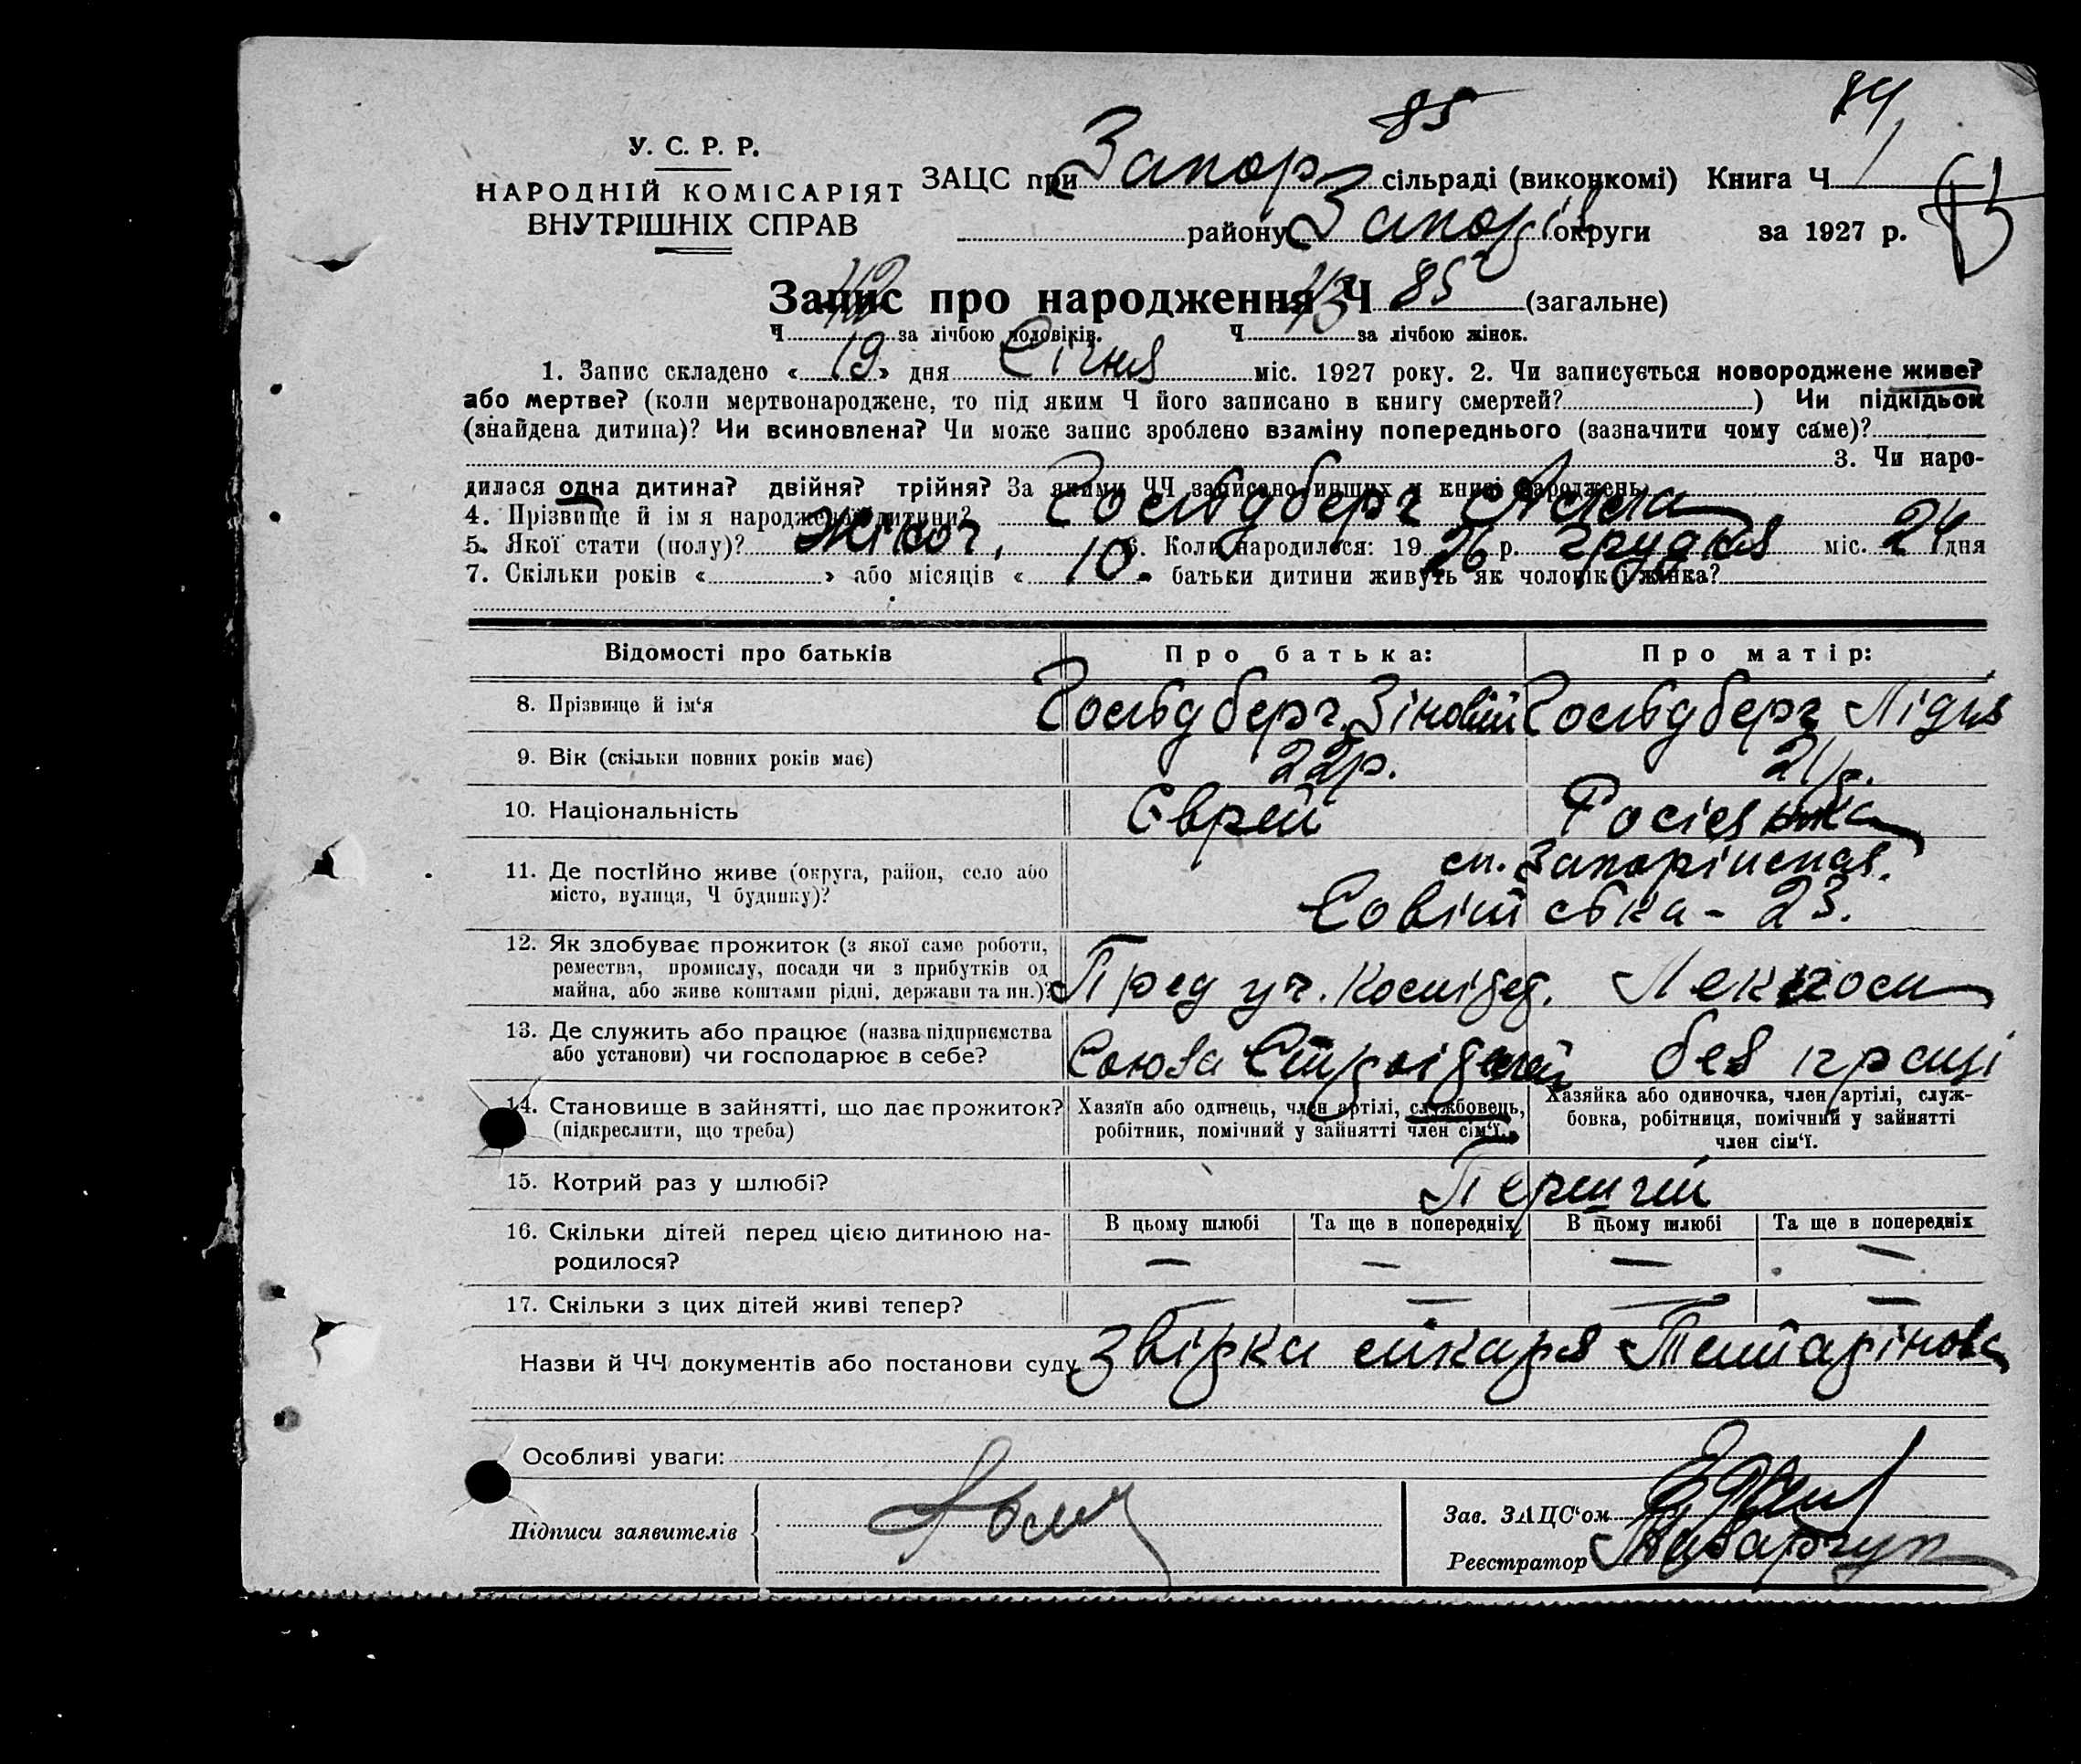 84
85
У. С. Р. Р.
НАРОДНІЙ КОМІСАРІЯТ
ВНУТРІШНІХ СПРАВ
ЗАЦС при Запор сільраді (виконкомі) Книга Ч 1
району Запоріз округи за 1927 р.
Запис про народження Ч 85 (загальне)
Ч 42 за лічбою чоловіків. Ч 43 за лічбою жінок.
1. Запис складено « 19 » дня Січня міс. 1927 року. 2. Чи записується новороджене живе?
або мертве? (коли мертвонароджене, то під яким Ч його записано в книгу смертей? ) Чи підкідьок
(знайдена дитина)? Чи всиновлена? Чи може запис зроблено взаміну попереднього (зазначити чому саме)?
3. Чи наро-
дилася одна дитина? двійня? трійня? За якими ЧЧ записано инших у книзі народжень
4. Прізвище й ім я народженої дитини? Гольдберг Алла
5. Якої стати (полу)? жіноч, 6. Коли народилося: 1926 р. грудня міс. 24 дня
7. Скільки років « » або місяців « 10 » батьки дитини живуть як чоловік і жінка?
Відомості про батьків Про батька: Про матір:
8. Прізвище й ім‘я Гольдберг Зіновій Гольдберг Лідія
9. Вік (скільки повних років має) 22р. 21р.
10. Національність Єврей Росіянка
11. Де постійно живе (округа, район, село або ст. Запоріжжя.
місто, вулиця, Ч будинку)? Совітська - 23.
12. Як здобуває прожиток (з якої саме роботи,
ремества, промислу, посади чи з прибутків од
майна, або живе коштами рідні, держави та ин.)? Пред уч.
13. Де служить або працює (назва підприємства
або установи) чи господарює в себе? Союза без праці
14. Становище в зайнятті, що дає прожиток? Хазяїн або одинець, член артілі, службовець, Хазяйка або одиночка, член артілі, служ-
(підкреслити, що треба) робітник, помічний у зайнятті член сім‘ї. бовка, робітниця, помічний у зайнятті
член сім‘ї.
15. Котрий раз у шлюбі? Перший
16. Скільки дітей перед цією дитиною на- В цьому шлюбі Та ще в попередніх В цьому шлюбі Та ще в попередніх
родилося? — — — —
17. Скільки з цих дітей живі тепер? — — — —
Назви й ЧЧ документів або постанови суду звірка лікаря
Особливі уваги:
Підписи заявителів
Зав. ЗАЦС‘ом
Реєстратор